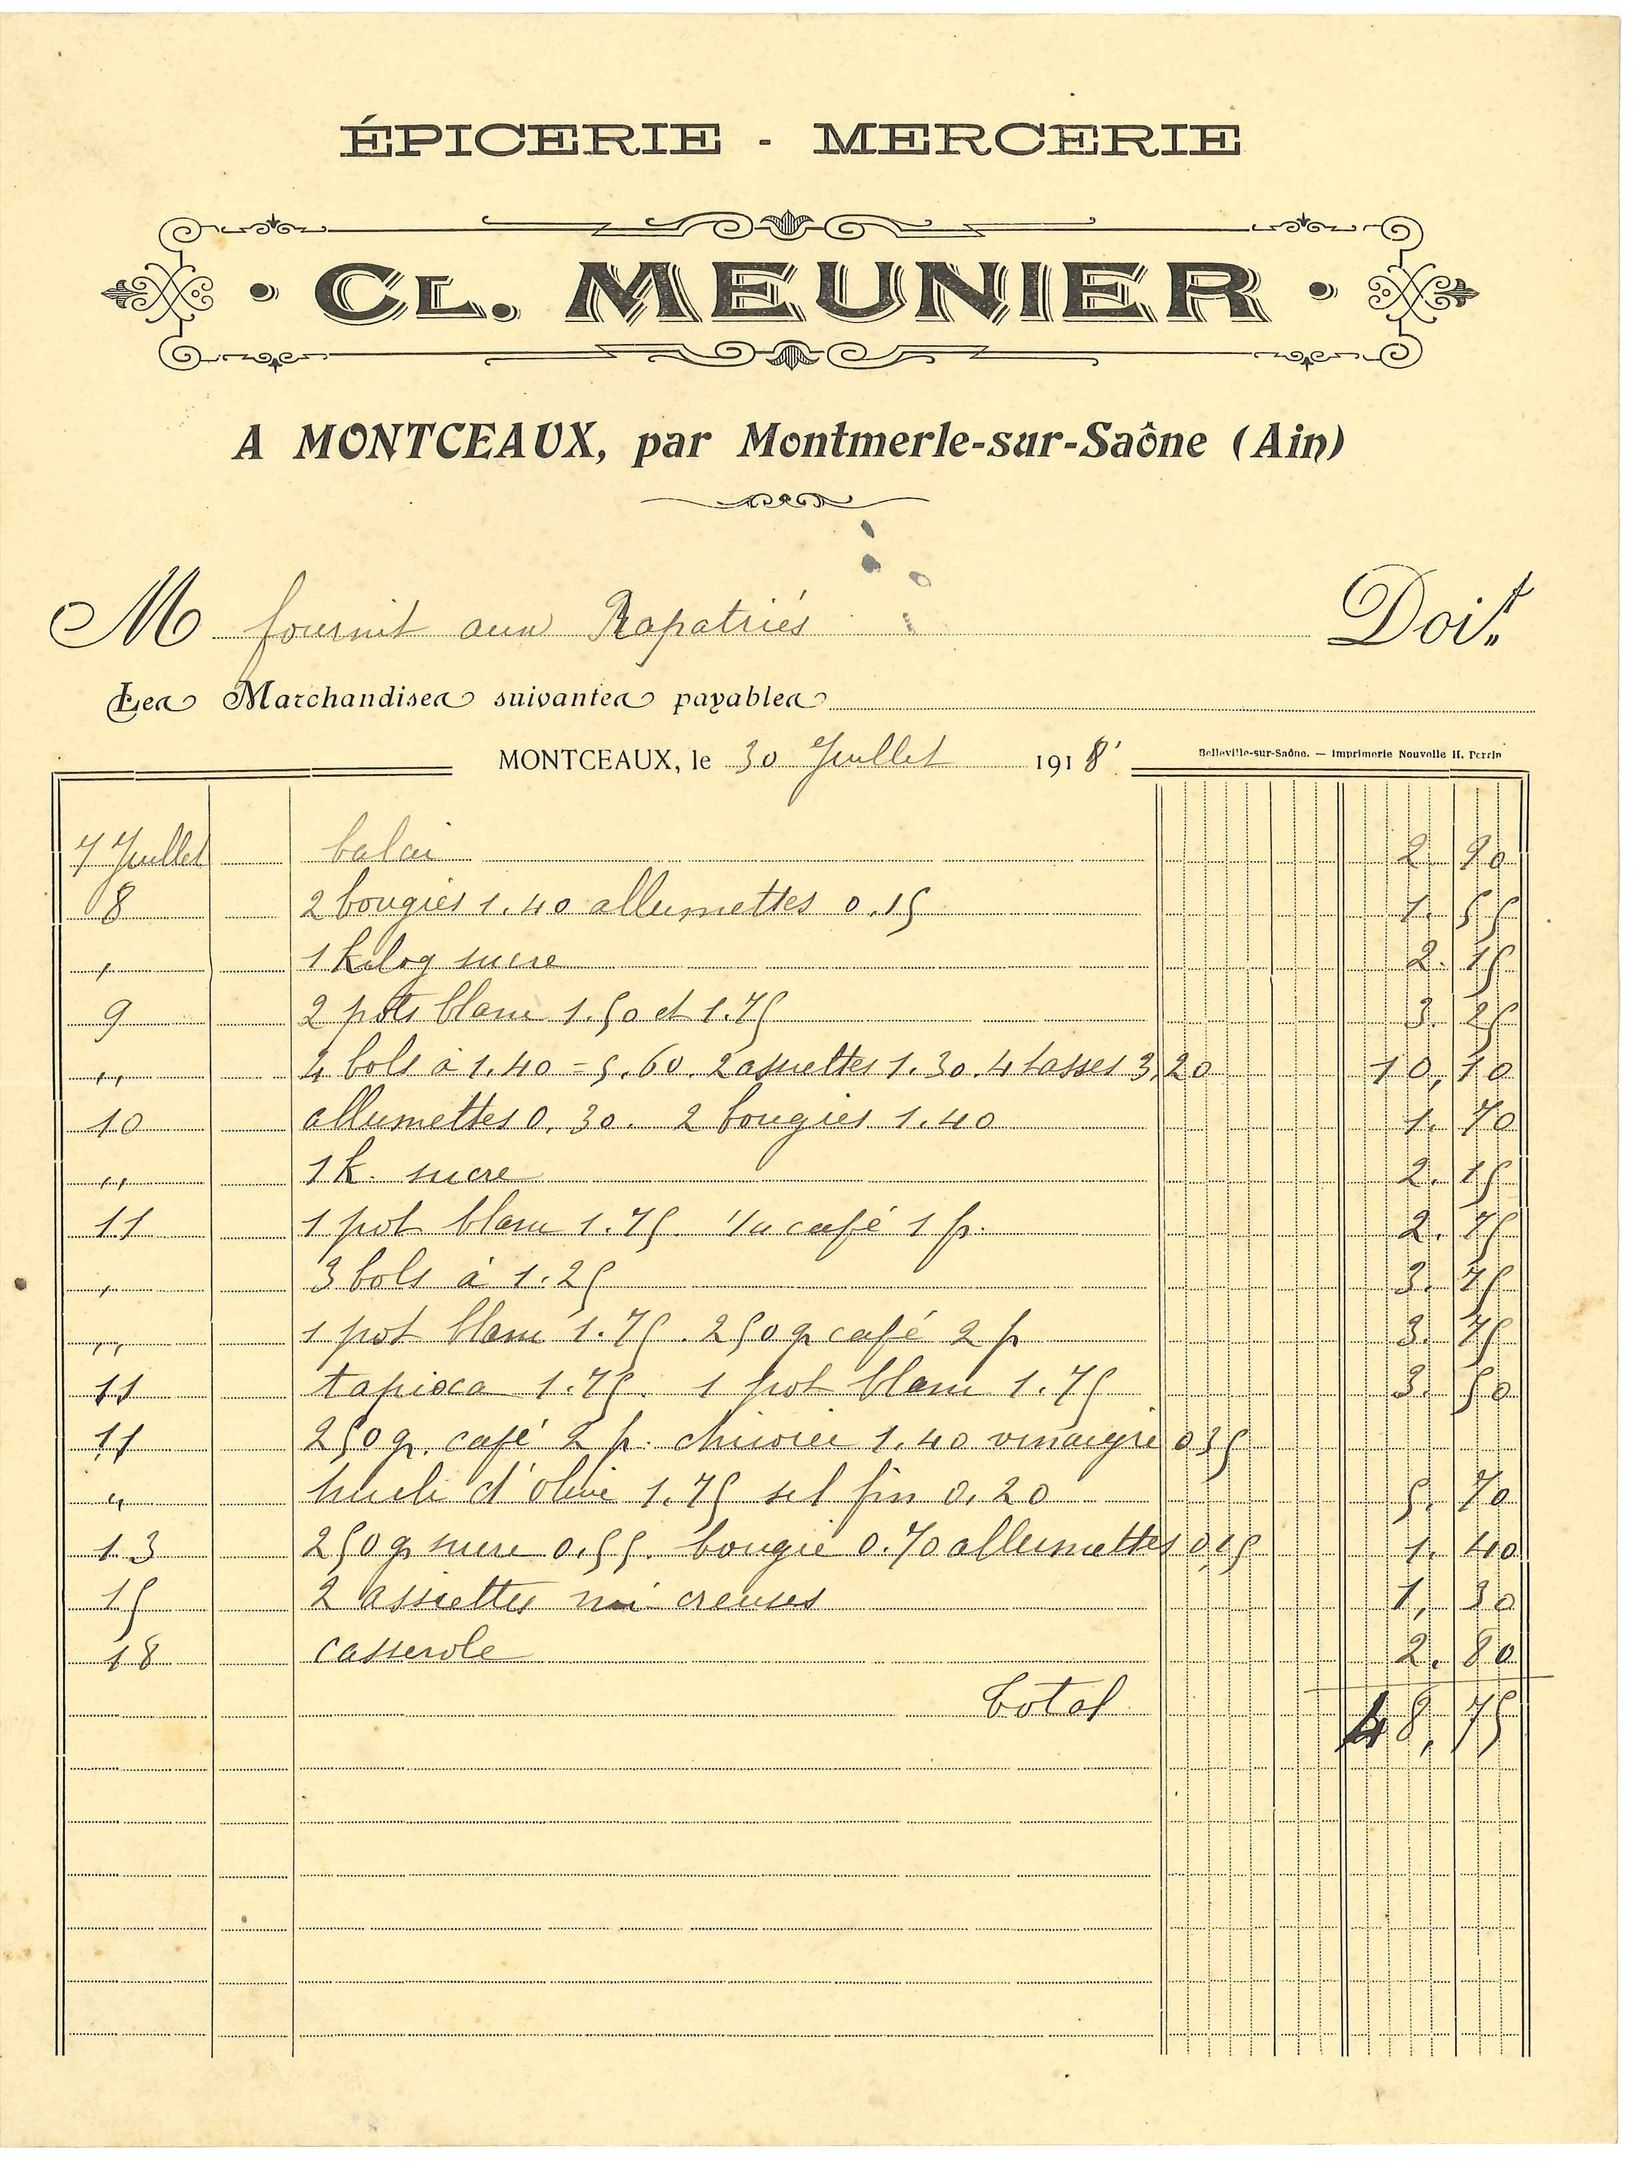 ÉPICERIE - MERCERIE
CL. MEUNIER
A MONTCEAUX, par Montmerle-sur-Saône (Ain)
M fournit aux Rapatriés Doit
Les Marchandises suivantes payables
MONTCEAUX, le 30 Juillet 1918
Belleville-sur-Saône. — Imprimerie Nouvelle H. Perrin
7 Juillet balai 2. 90
8 2 bougies 1.40 allumettes 0.15 1. 55
" 1 kilog sucre 2. 15
9 2 pots blanc 1.50 et 1.75 3. 25
" 4 bols à 1.40 = 5.60. 2 assiettes 1.30. 4 tasses 3,20 10, 10
10 allumettes 0.30. 2 bougies 1.40 1. 70
" 1 k. sucre 2. 15
11 1 pot blanc 1.75. café 1 fr. 2. 75
" 3 bols à 1.25 3. 75
" 1 pot blanc 1.75. 250 g café 2 fr 3. 75
11 tapioca 1.75. 1 pot blanc 1.75 3. 50
11 250 g. café 2 fr. chicorée 1.40 vinaigre 0 35
" huile d'olive 1.75 sel fin 0.20 5. 70
13 250 g sucre 0.55. bougie 0.70 allumettes 0,15 1. 40
15 2 assiettes mi creuses 1, 30
18 casserole 2. 80
total 48, 75